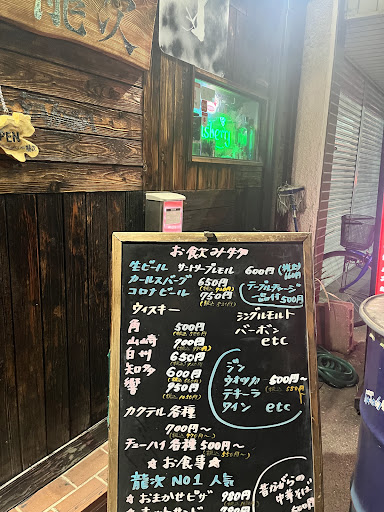 龍次
OPEN
お飲み物
生ビール サントリープレモル 600円(税込660円)
カールスバーグ 650円
コロナビール 750円
テーブルチャージ
一品付500円
ウィスキー
角 500円
山崎 900円
白州 650円
知多 600円
響 950円
シングルモルト
バーボン
etc
ジン
ウォッカ 500円〜
テキーラ
ワイン etc
カクテル各種
700円〜
チューハイ各種 500円〜
☆お食事☆
龍次 NO1 人気
☆おまかせピザ 980円
昔ながらの
中華そば